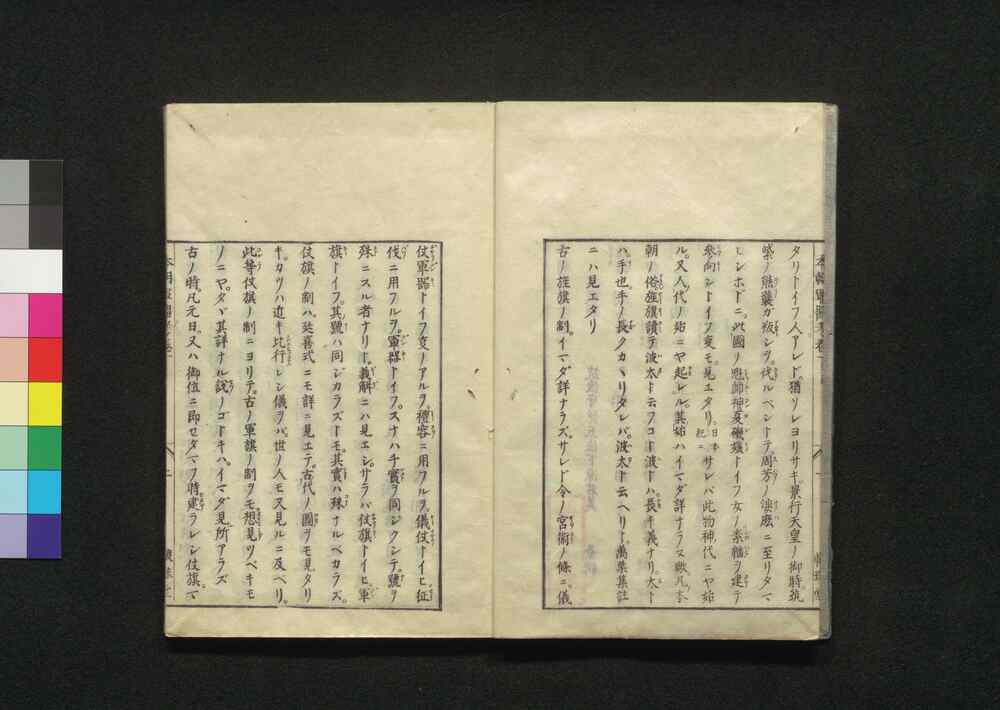 タリトイフ人アレド猶ソレヨリサキ景行天皇ノ御時筑
紫ノ熊襲ガ叛シヲ伐ルベシトテ周芳ノ娑麼ニ至リタマ
ヒシホドニ此國ノ魁帥神夏磯媛トイフ女ノ素幡ヲ建テ
參向シトイフ事モ見エタリ日本紀ニサレバ此物神代ニヤ始
ル又人代ノ始ニヤ起レル其始ハイマダ詳ナラス歟凡本
朝ノ俗旌旗讀テ波太ト云フコト波トハ長キ義ナリ太ト
ハ手也手ノ長クカヽリタレバ波太ト云ヘリト萬葉集註
ニハ見エタリ
古ノ旌旗ノ制イマダ詳ナラズサレド令ノ宮衛ノ條ニ儀
仗軍器トイフ事ノアルヲ禮容ニ用フルヲ儀仗トイヒ征
伐ニ用フルヲ軍器トイフスナハチ實ヲ同シクシテ號ヲ
殊ニスル者ナリト義解ニハ見エシサラバ仗旗トイヒ軍
旗トイフ其號ハ同ジカラズトモ其實ハ殊ナルベカラズ
仗旗ノ制ハ延喜式ニモ詳ニ見エテ古代ノ圖ヲモ見タリ
キカツハ近キ比行レシ儀ヲバ世ノ人モ又見ルニ及ベリ
此等仗旗ノ制ニヨリテ古ノ軍旗ノ制ヲモ想見ツベキモ
ノニヤタヾ其詳ナル説ノゴトキハイマダ見所アラズ
古ノ時凡元日又ハ御位ニ即セタマフ時建ラレシ仗旗マ